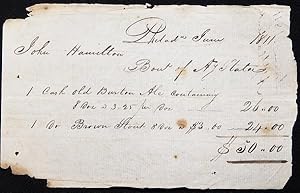 Philada June
John Hamilton
Bout of
1 Cask old Burton Ale containing
8 Doz @ 3.25 26.00
1 Do Brown Stout 8 Doz @ $3.00 24.00
$50.00